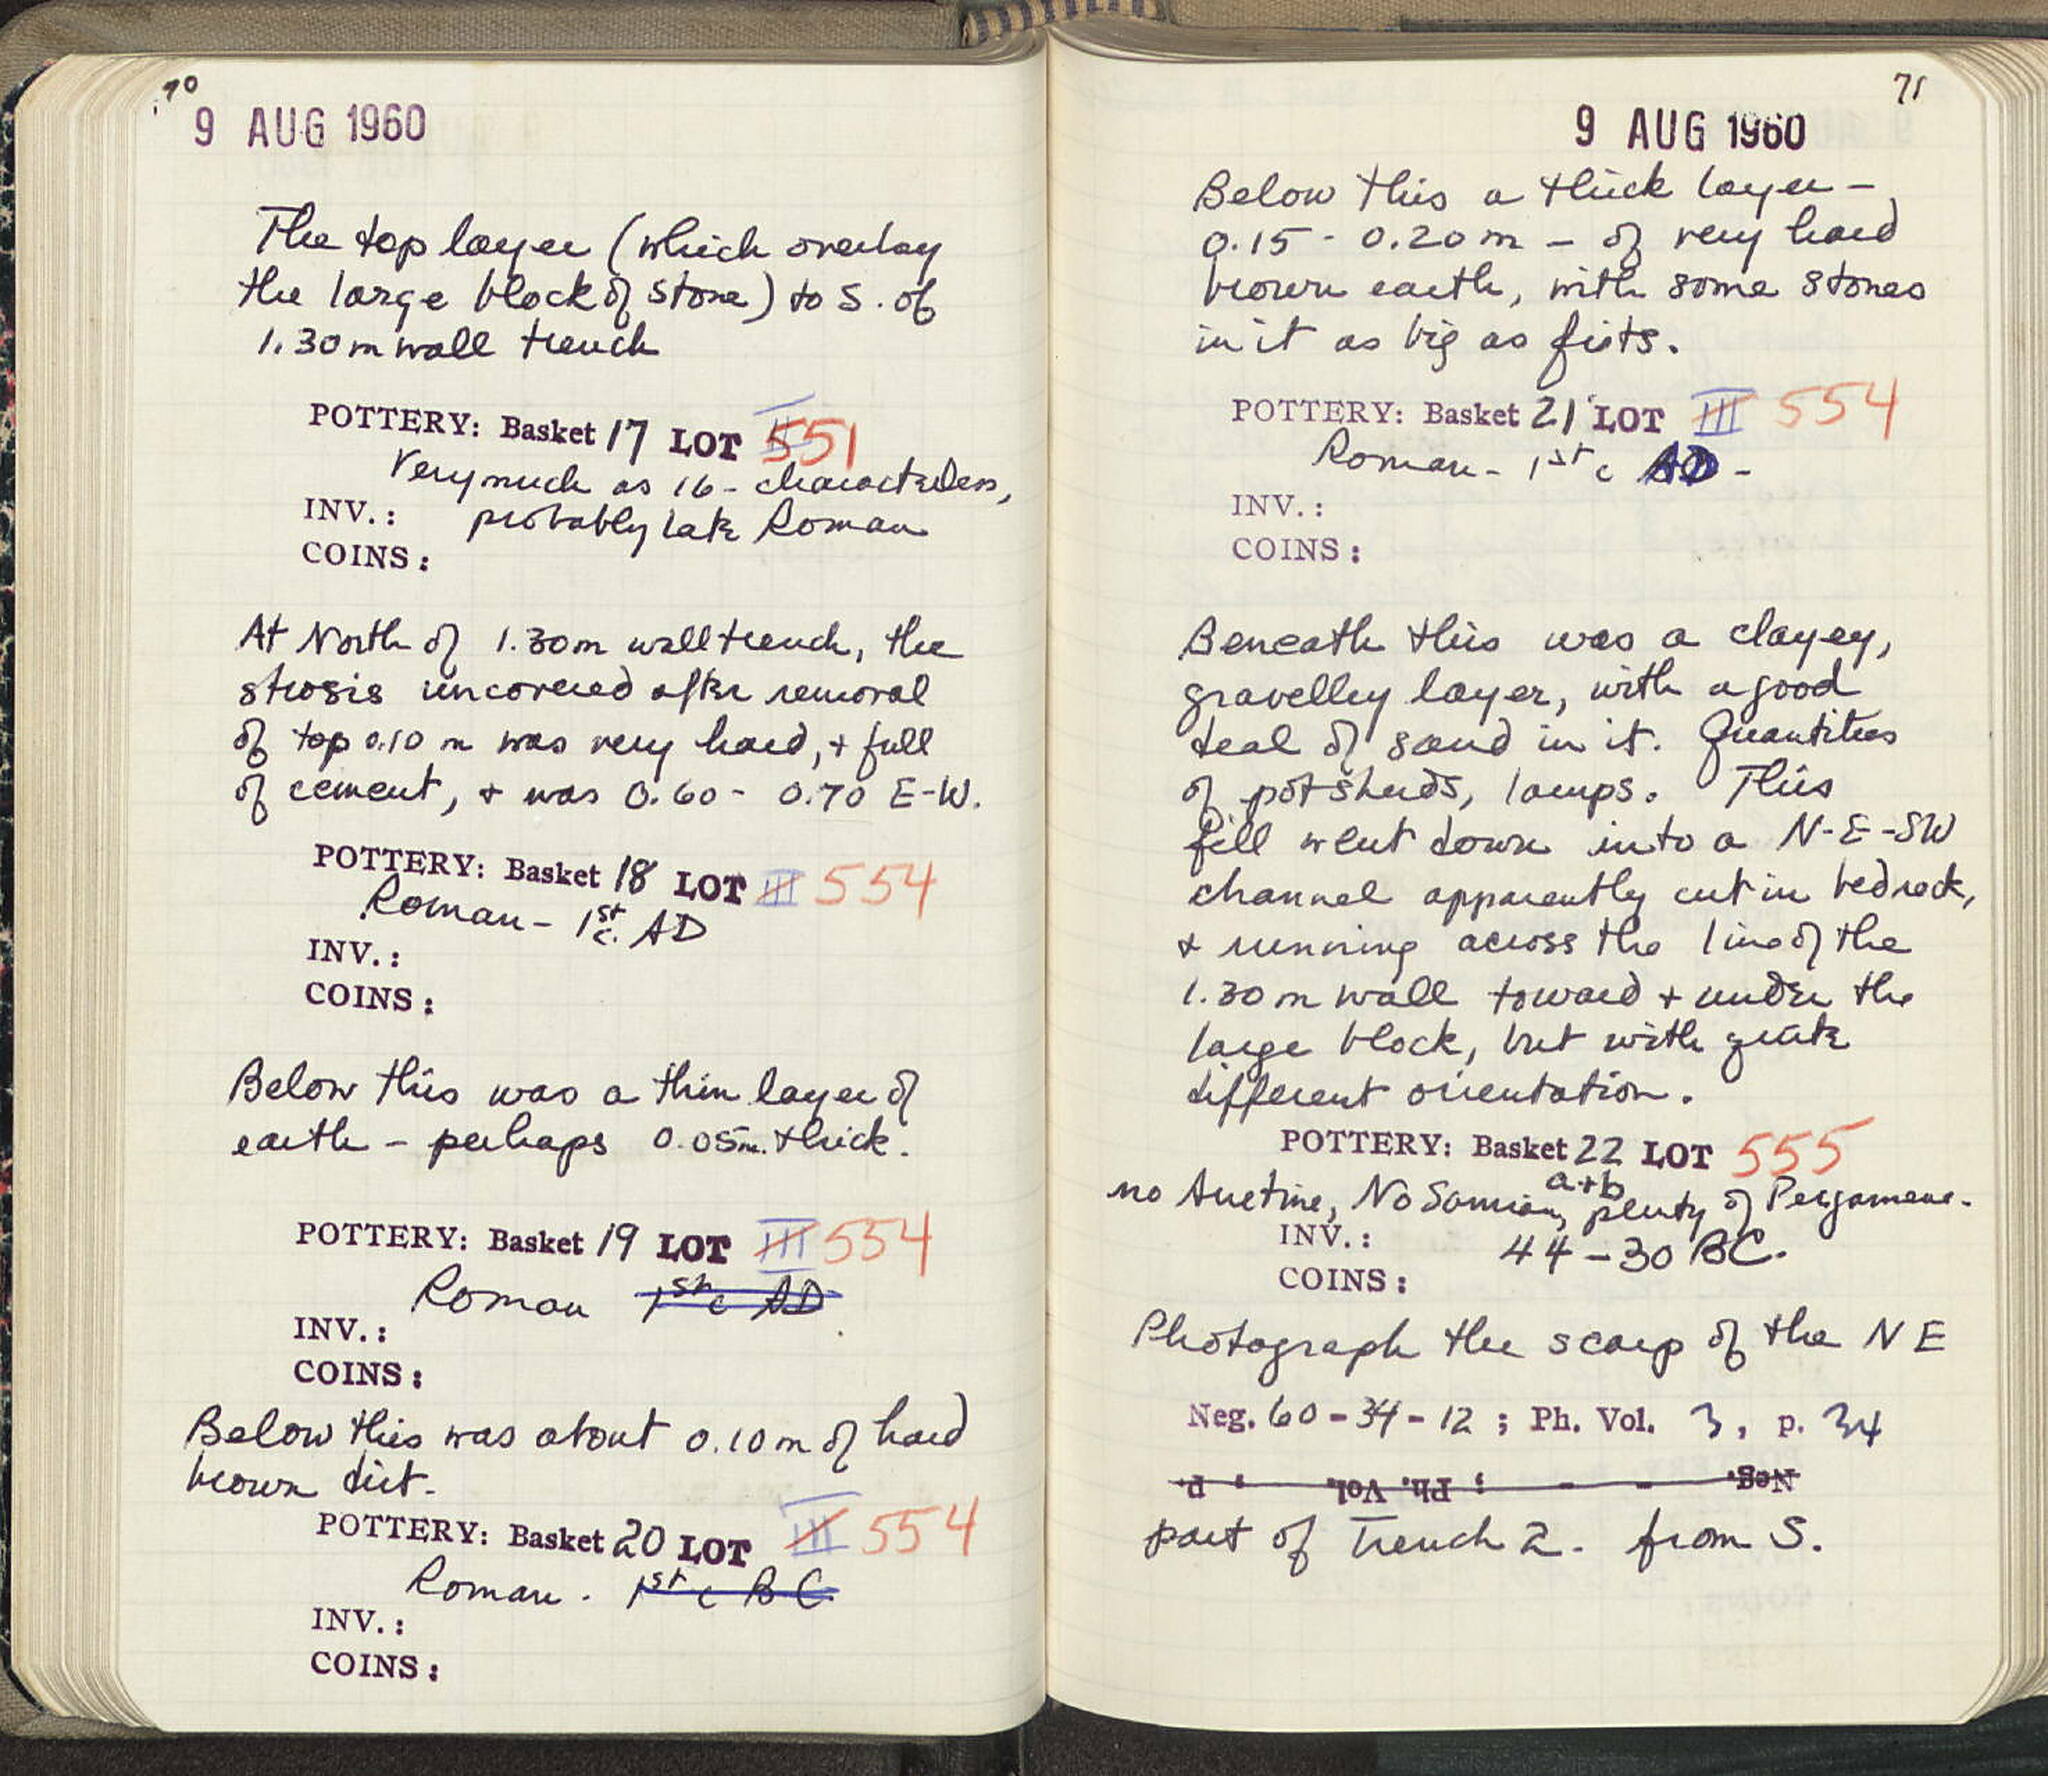 70
9 AUG 1960
The top layer (which overlay
the large block of stone) to S. of
1.30 m wall trench
POTTERY: Basket 17 LOT II 551
Very much as 16 - characterless,
INV.: probably late Roman
COINS:
At North of 1.30m wall trench, the
strosis uncovered after removal
of top 0.10 m was very hard, + full
of cement, + was 0.60 - 0.70 E-W.
POTTERY: Basket 18 LOT III 554
Roman - 1st c. AD
INV.:
COINS:
Below this was a thin layer of
earth - perhaps 0.05m. thick.
POTTERY: Basket 19 LOT III 554
Roman 1st c AD
INV.:
COINS:
Below this was about 0.10m of hard
brown dirt.
POTTERY: Basket 20 LOT III 554
Roman. 1st c BC
INV.:
COINS:
71
9 AUG 1960
Below this a thick layer -
0.15 - 0.20 m - of very hard
brown earth, with some stones
in it as big as fists.
POTTERY: Basket 21 LOT III 554
Roman - 1st c -
INV.:
COINS:
Beneath this was a clayey,
gravelley layer, with a good
deal of sand in it. Quantities
of potsherds, lamps. This
fill went down into a N-E-SW
channel apparently cut in bedrock,
+ running across the line of the
1.30 m wall toward + under the
large block, but with quite
different orientation.
POTTERY: Basket 22 LOT 555
a+b
no Arretine, No Samian, plenty of Pergamene.
INV.: 44 - 30 BC.
COINS:
Photograph the scarp of the NE
Neg. 60-34-12; Ph. Vol. 3, p. 34
Neg. - - ; Ph. Vol. , p.
part of Trench 2. from S.